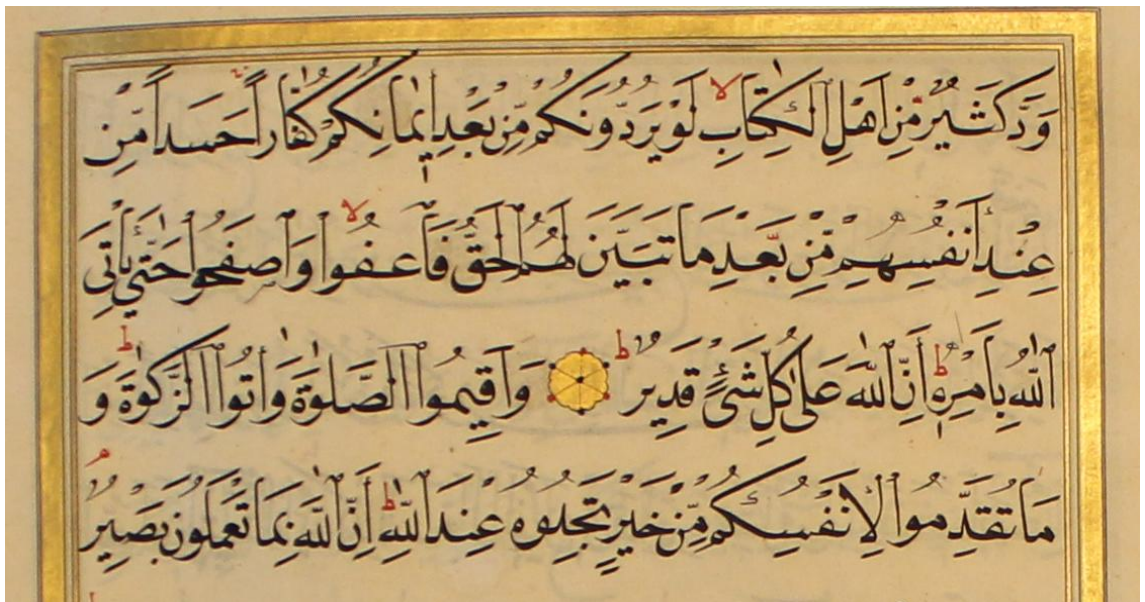 وَدَّ كَثِيرٌ مِّنْ اَهْلِ الْكِتَابِ لَوْ يَرُدُّونَكُمْ مِّنْ بَعْدِ اِيمَانِكُمْ كُفَّاراً حَسَداً مِّنْ
عِنْدِ اَنْفُسِهِمْ مِّنْ بَعْدِ مَا تَبَيَّنَ لَهُمُ الْحَقُّ فَاعْفُوا وَاصْفَحُوا حَتّٰى يَأْتِىَ
اللّٰهُ بِاَمْرِهٖ اَنَّ اللّٰهَ عَلٰى كُلِّ شَىْءٍ قَدِيرٌ وَاَقِيمُوا الصَّلٰوةَ وَاٰتُوا الزَّكٰوةَ وَ
مَا تُقَدِّمُوا لِاَنْفُسِكُمْ مِّنْ خَيْرٍ تَجِدُوهُ عِنْدَ اللّٰهِ اَنَّ اللّٰهَ بِمَا تَعْمَلُونَ بَصِيرٌ